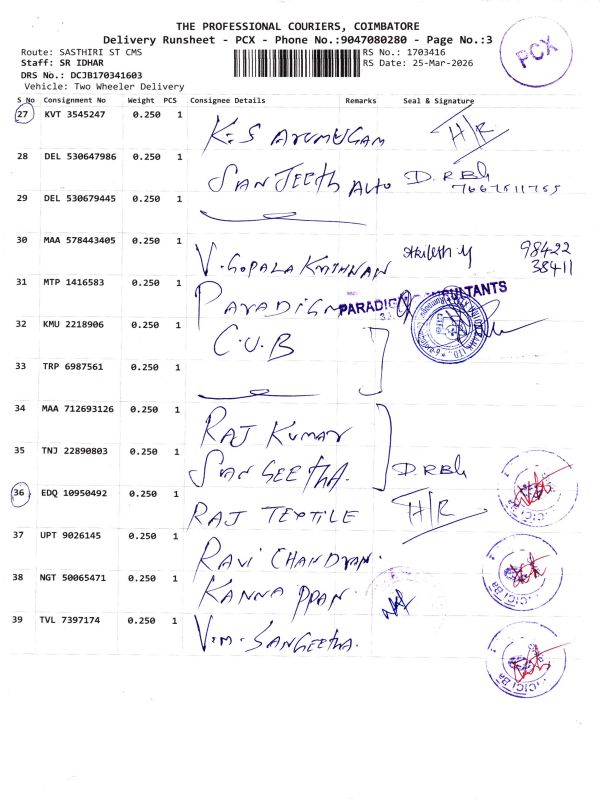 THE PROFESSIONAL COURIERS, COIMBATORE
Delivery Runsheet - PCX - Phone No.:9047080280 - Page No.:3
PCX
Route: SASTHIRI ST CMS
RS No.: 1703416
Staff: SR IDHAR
RS Date: 25-Mar-2026
DRS No.: DCJB170341603
Vehicle: Two Wheeler Delivery
S No Consignment No Weight PCS Consignee Details Remarks Seal & Signature
27 KVT 3545247 0.250 1 K.S ARUMUGAM H/R
28 DEL 530647986 0.250 1 SANJEETH AUTO
29 DEL 530679445 0.250 1
30 MAA 578443405 0.250 1 V. GOPALA KRISHNAN 98422
38411
31 MTP 1416583 0.250 1 PARADIGM
32 KMU 2218906 0.250 1 C.U.B
33 TRP 6987561 0.250 1
34 MAA 712693126 0.250 1 RAJ KUMAR
35 TNJ 22890803 0.250 1 SANGEETHA.
36 EDQ 10950492 0.250 1 RAJ TEXTILE H/R
37 UPT 9026145 0.250 1 RAVI CHANDRAN.
38 NGT 50065471 0.250 1 KANNAPPAN.
39 TVL 7397174 0.250 1 V.M. SANGEETHA.